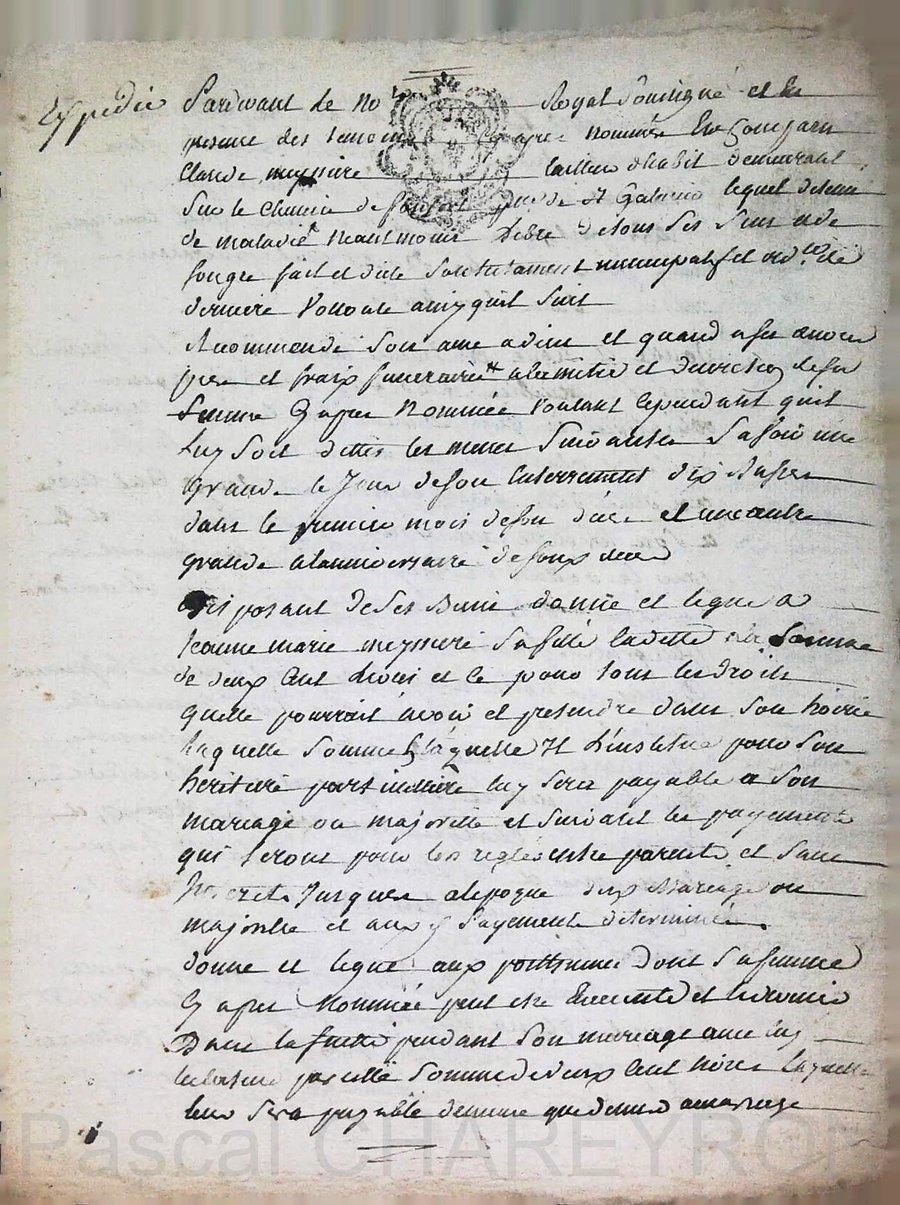 Expedié
Pardevant le No Royal soussigné et en
presence des temoins cy apres nommés
Claude meyssire tailleur d'habit demeurant
sur le chemin de St Galmier lequel detenu
de maladie neantmoins libre de tous ses sens a de
son gre fait et dicté son testament nuncupatif et ord.re de
derniere volonté ainsy quil suit
Recommende son ame a dieu et quand a ses œuvres
pies et fraix funeraire
femme cy apres nommée voulant cependant quil
luy soit dittes les messes suivantes savoir une
grande le jour de son enterrement dix basses
dans le premier mois de son décès et une autre
grande a lanniversaire de son deces
disposant de ses biens donne et legue a
jeanne marie meyssire sa fille cadette la somme
de deux cent livres et ce pour tous les droits
quelle pourrait avoir et pretendre dans son hoirie
laquelle somme laquelle il linstitue pour son
heritiere particuliere luy sera payable a son
mariage ou majorité et suivant les payements
qui seront pour lors reglés entre parents et sans
interets jusques a lepoque dux mariage ou
majorité et aux payements determinés.
donne et legue aux posthumes dont sa femme
cy apres nommée peut etre enceinte et
dans la suitte pendant son mariage avec luy
pareille somme de deux cent livres laquelle
leur sera payable de meme que dessus au mariage
Pascal CHAREYRON